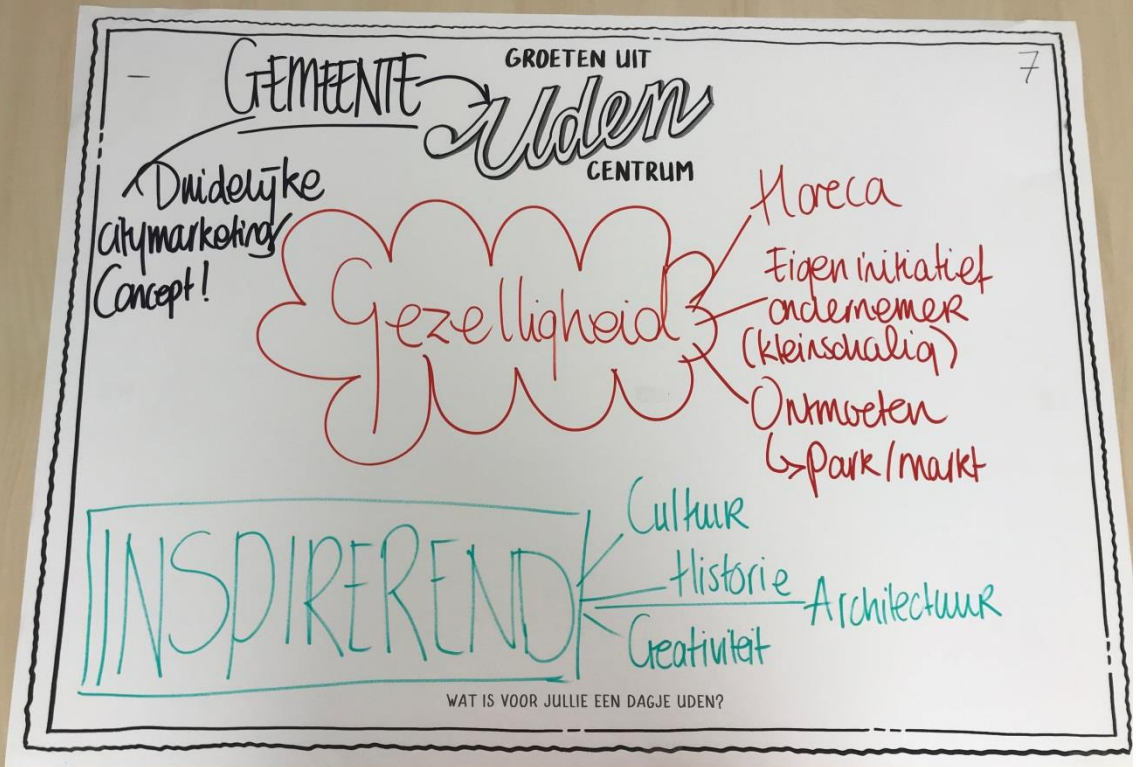 GEMEENTE
GROETEN UIT
Uden
CENTRUM
7
Duidelijke
citymarketing
Concept!
Gezelligheid
Horeca
Eigen initiatief
ondernemer
(kleinschalig)
Ontmoeten
↳ park/markt
INSPIREREND
Cultuur
Historie
Architectuur
Creativiteit
WAT IS VOOR JULLIE EEN DAGJE UDEN?